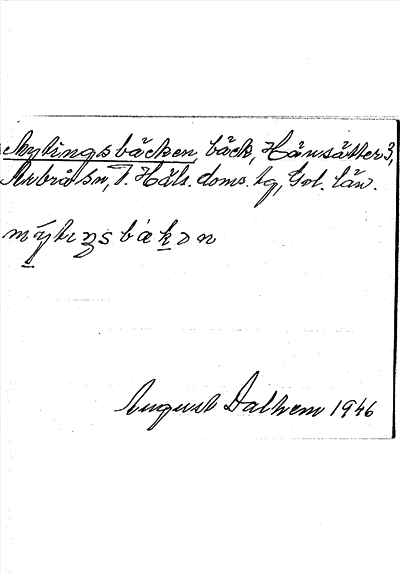 Mytingsbäcken, bäck, Hänsätter 3,
Arbrå sn, V. Häls. doms. tg, Gvl. län.
mýtiŋsbäkən
August Dalhem 1946